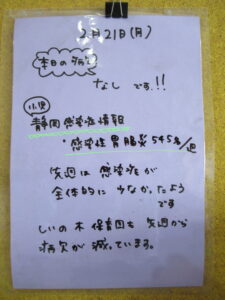 2月21日(月)
本日の病欠
なしです!!
小児
静岡感染症情報
・感染性胃腸炎545名/週
先週は感染症が
全体的に少なかったよう
です
しいの木保育園も先週から
病欠が減っています。